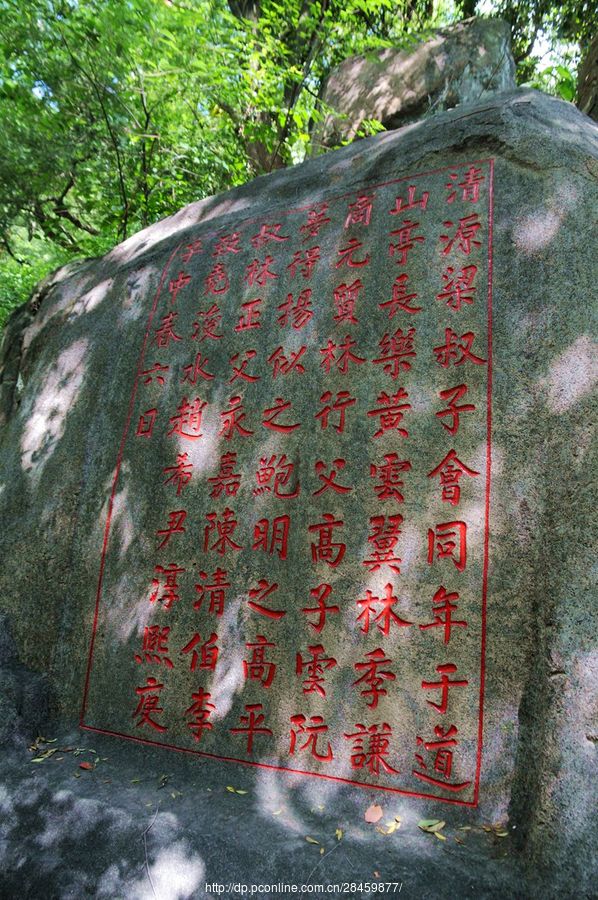 清源梁叔子會同年于道
山亭長樂黃雲翼林季謙
商元質林行父高子雲阮
夢得揚似之鮑明之高平
叔林正父永嘉陳清伯李
致堯浚水趙希尹淳熙庚
子中春六日
http://dp.pconline.com.cn/28459877/